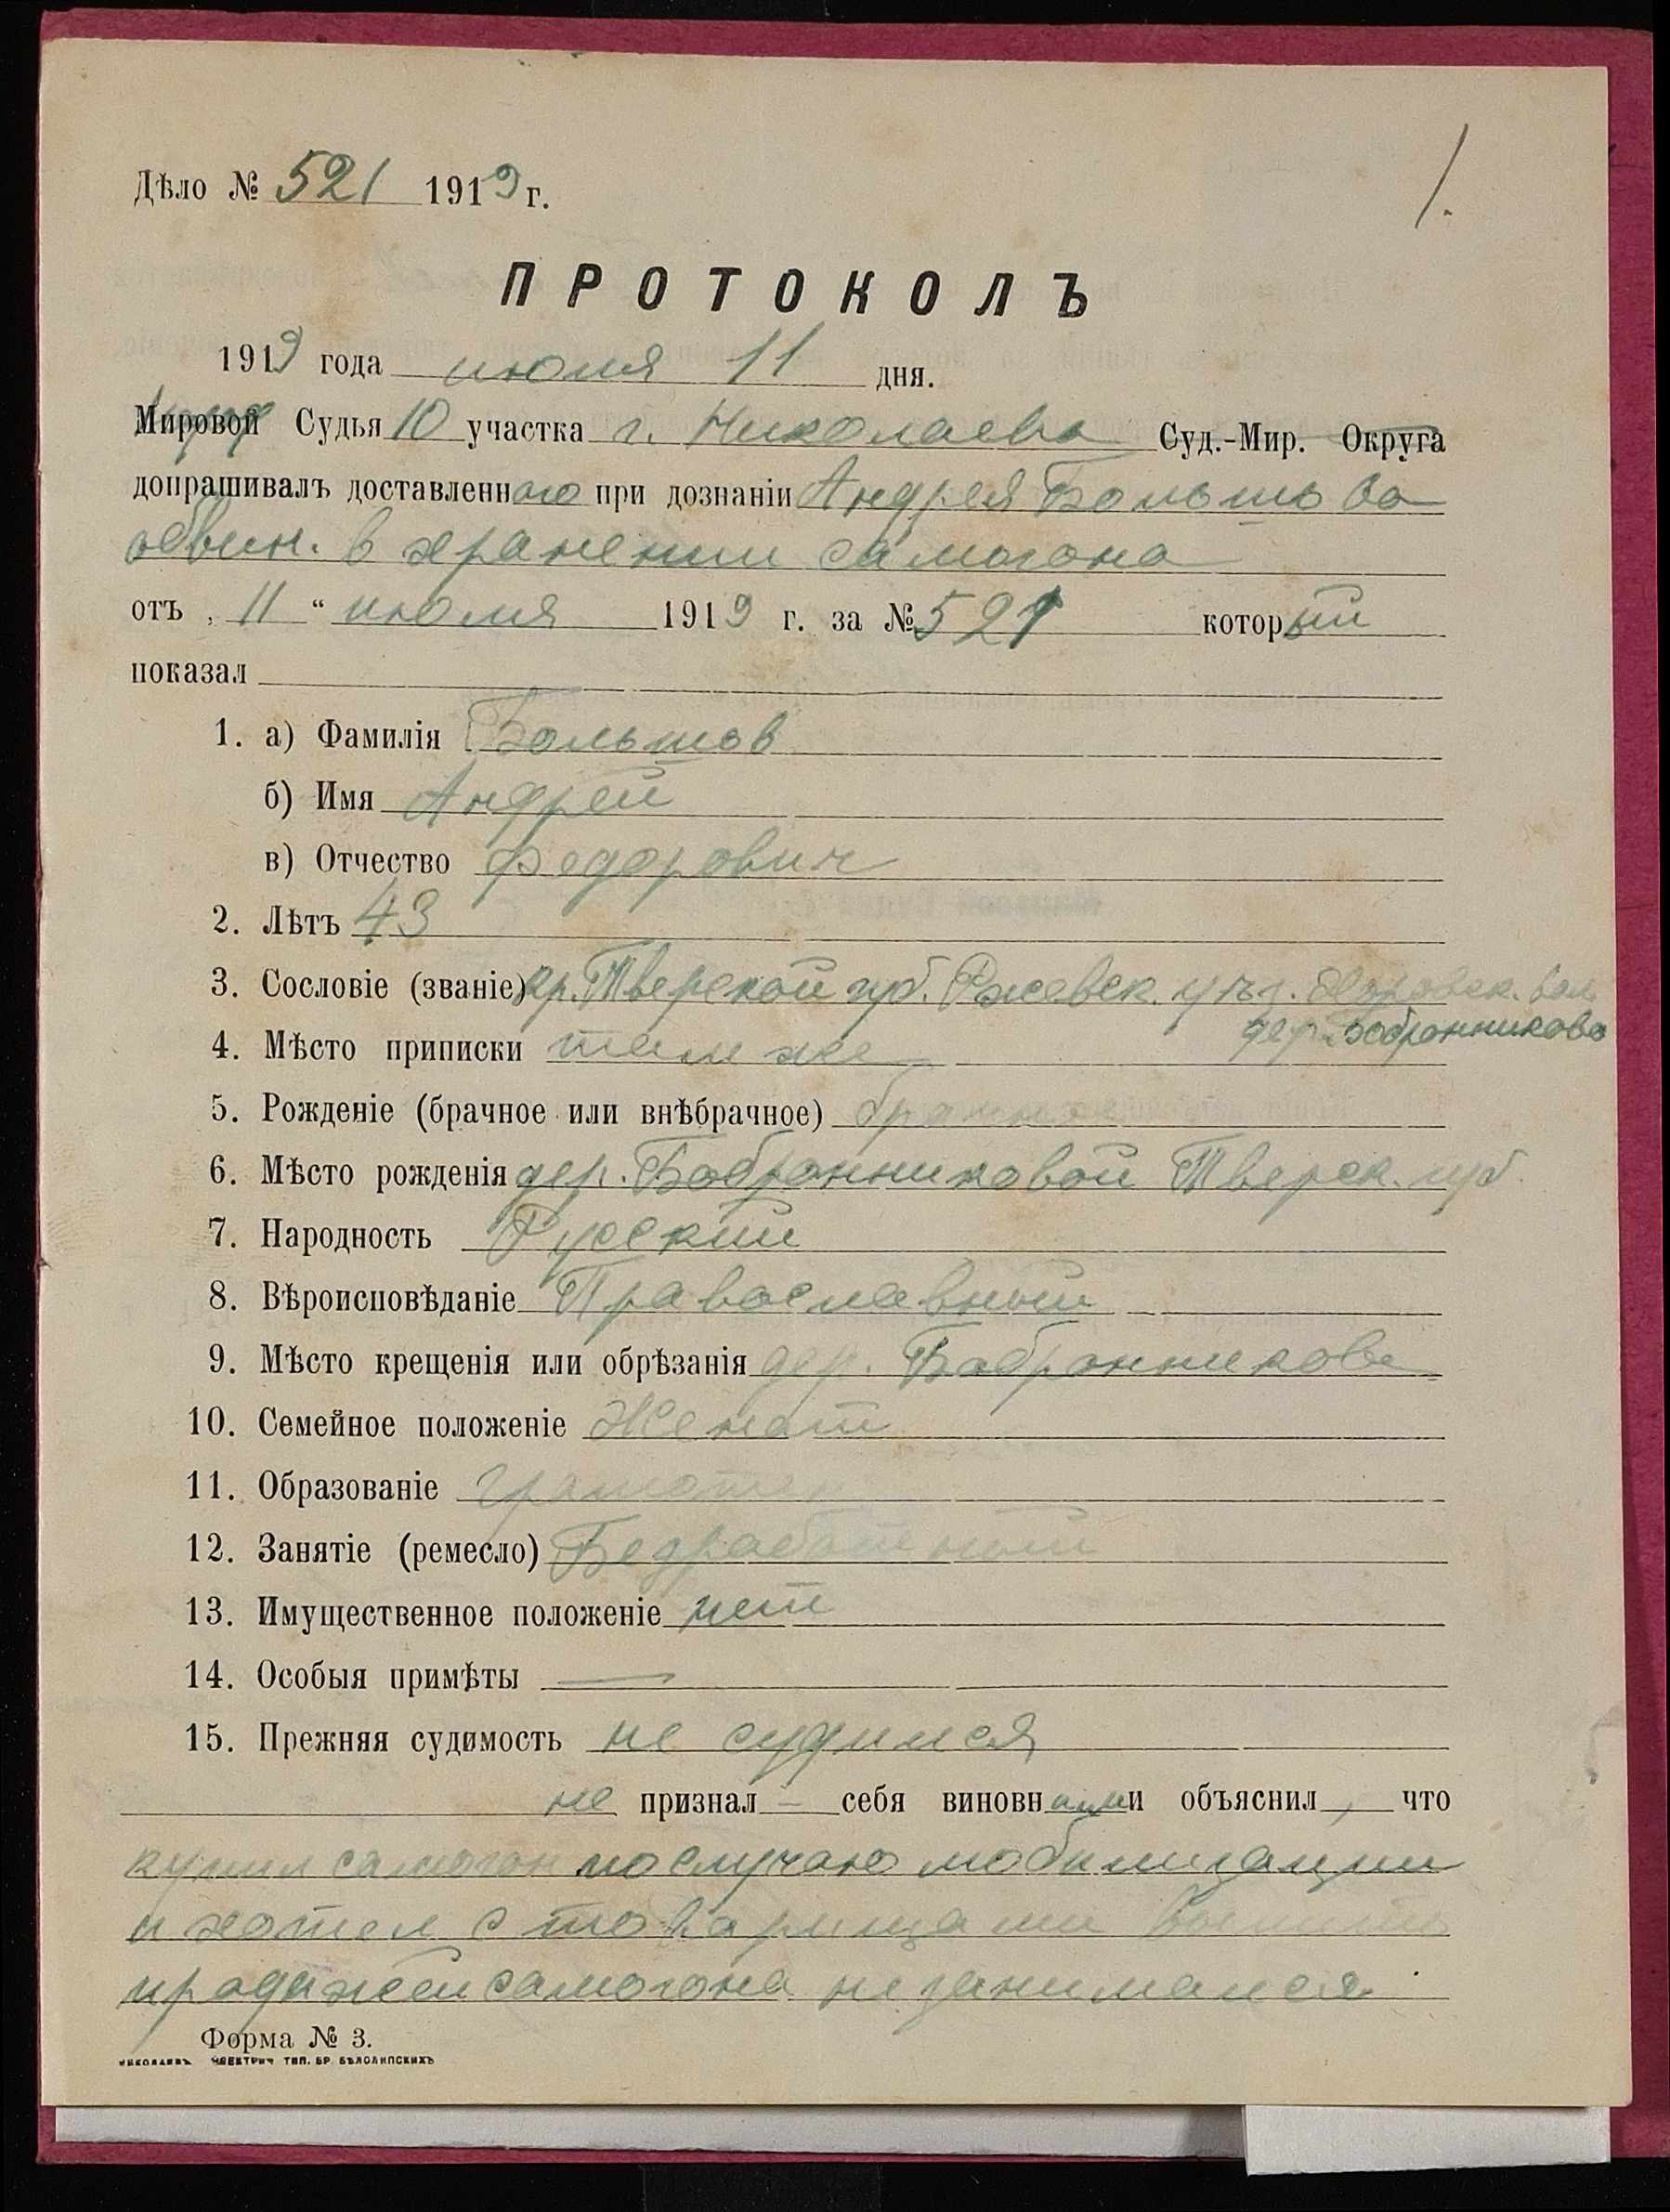 Дѣло № 521 1919 г.
1.
ПРОТОКОЛЪ
1919 года июля 11 дня.
Мировой Судья 10 участка г. Николаева Суд.-Мир. Округа
допрашивалъ доставленного при дознаніи Андрея Большова
обвин. в хранении самогона
отъ „ 11 “ июля 1919 г. за № 521 который
показал
1. а) Фамилія Большов
б) Имя Андрей
в) Отчество Федорович
2. Лѣтъ 43
3. Сословіе (званіе) кр. Тверской губ. Ржевск. уѣз. вол.
дер. Бобронниково
4. Мѣсто приписки там же
5. Рожденіе (брачное или внѣбрачное) брачное
6. Мѣсто рожденія дер. Бобронниковой Тверск. губ.
7. Народность Русский
8. Вѣроисповѣданіе Православный
9. Мѣсто крещенія или обрѣзанія дер. Бобронниково
10. Семейное положеніе Женат
11. Образованіе грамотен
12. Занятіе (ремесло) Безработный
13. Имущественное положеніе нет
14. Особыя примѣты —
15. Прежняя судимость не судился
не признал – себя виновным и объяснил, что
купил самогон по случаю мобилизации
и хотел с товарищами выпить
продажей самогона не занимался.
Форма № 3.
НИКОЛАЕВЪ ЭЛЕКТРИЧ ТИП. БР. БѢЛОЛИПСКИХЪ